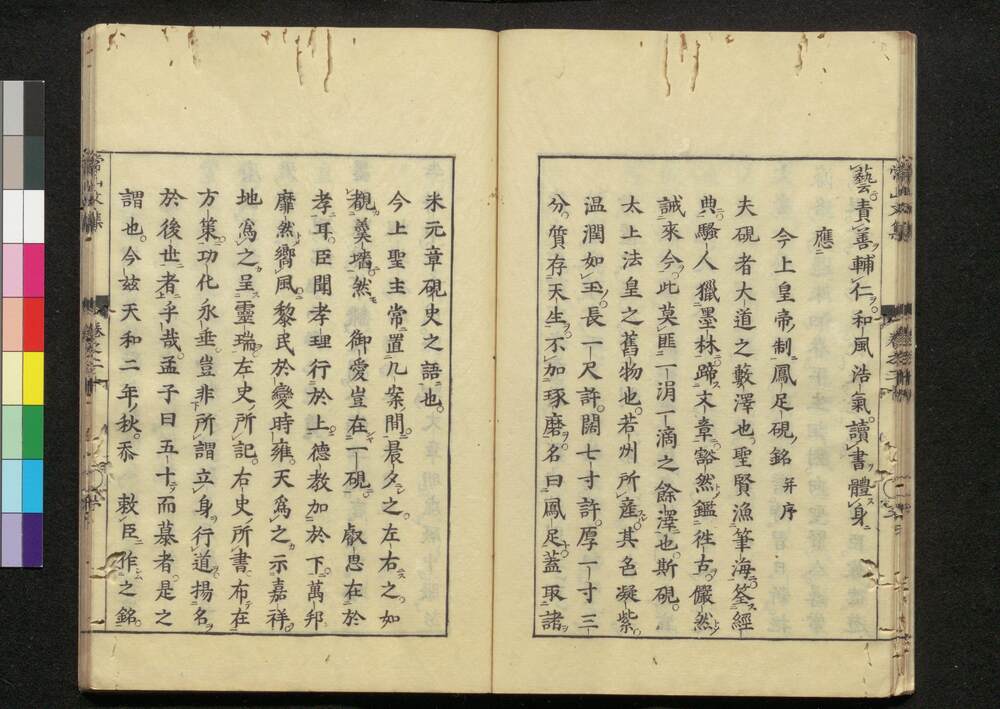 藝責善輔仁和風浩氣讀書體身
應
今上皇帝制鳳足硯銘并序
夫硯者大道之藪澤也聖賢漁筆海筌經
典騷人獵墨林蹄文章豁然鑑徃古儼然
誡來今此莫匪一涓一滴之餘澤也斯硯
太上法皇之舊物也若州所產其色凝紫
温潤如玉長一尺許闊七寸許厚一寸三
分質存天生不加琢磨名曰鳳足蓋取諸
米元章硯史之語也
今上聖主常置几案間晨夕之左右之如
覩羹墻然御愛豈在一硯叡思在於
孝耳臣聞孝理行於上德教加於下萬邦
靡然嚮風黎民於變時雍天爲之示嘉祥
地爲之呈靈瑞左史所記右史所書布在
方策功化永垂豈非所謂立身行道揚名
於後世者乎哉孟子曰五十而慕者是之
謂也今茲天和二年秋忝 敕臣作之銘
常山文集
卷之二十
常山文集